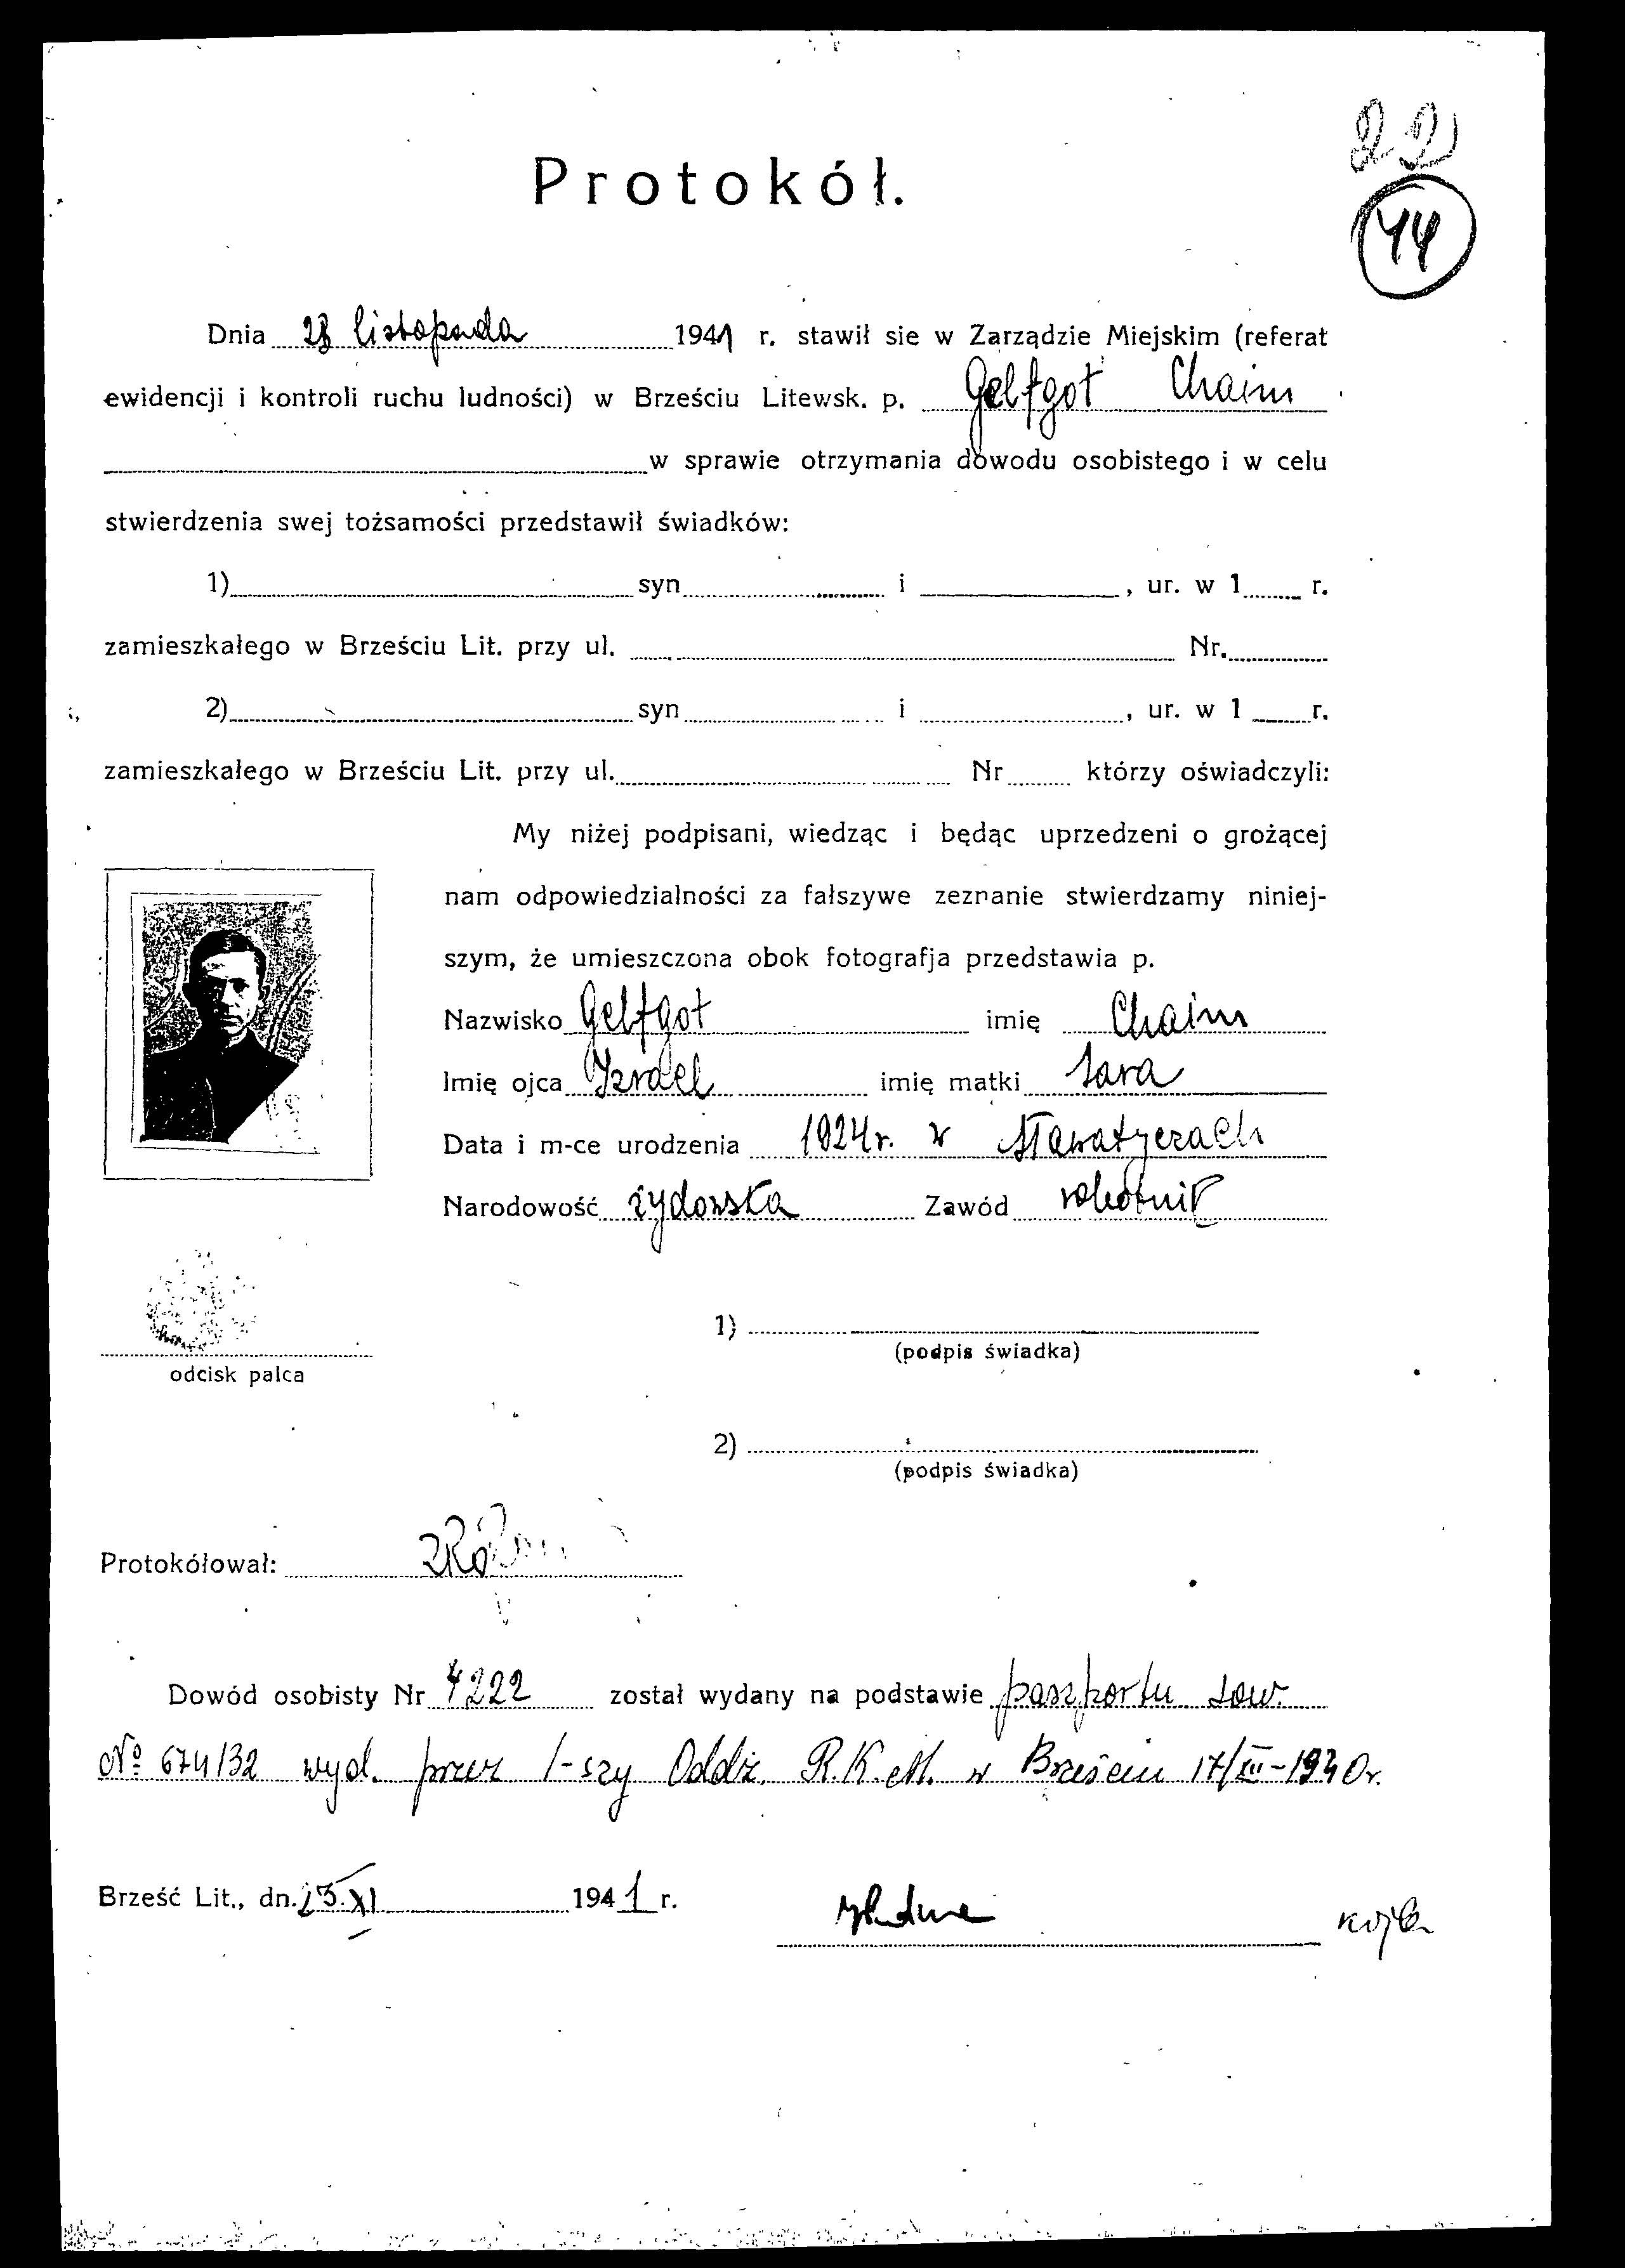 22
44
Protokół.
Dnia listopada 1941 r. stawił sie w Zarządzie Miejskim (referat
ewidencji i kontroli ruchu ludności) w Brześciu Litewsk. p. Gelfgot Chaim
w sprawie otrzymania dowodu osobistego i w celu
stwierdzenia swej tożsamości przedstawił świadków:
1) syn i , ur. w 1 r.
zamieszkałego w Brześciu Lit. przy ul. Nr.
2) syn i , ur. w 1 r.
zamieszkałego w Brześciu Lit. przy ul. Nr którzy oświadczyli:
My niżej podpisani, wiedząc i będąc uprzedzeni o grożącej
nam odpowiedzialności za fałszywe zeznanie stwierdzamy niniej-
szym, że umieszczona obok fotografja przedstawia p.
Nazwisko Gelfgot imię Chaim
Imię ojca Izrael imię matki Sara
Data i m-ce urodzenia 1924 r. w Sławatyczach
Narodowość żydowska Zawód robotnik
odcisk palca
1)
(podpis świadka)
2)
(podpis świadka)
Protokółował:
Dowód osobisty Nr 4222 został wydany na podstawie paszportu sow.
№ 674132 wyd. przez I-szy Oddz. R.K.M. w Brześciu 17/III-1940r.
Brześć Lit., dn. XI 1941 r.